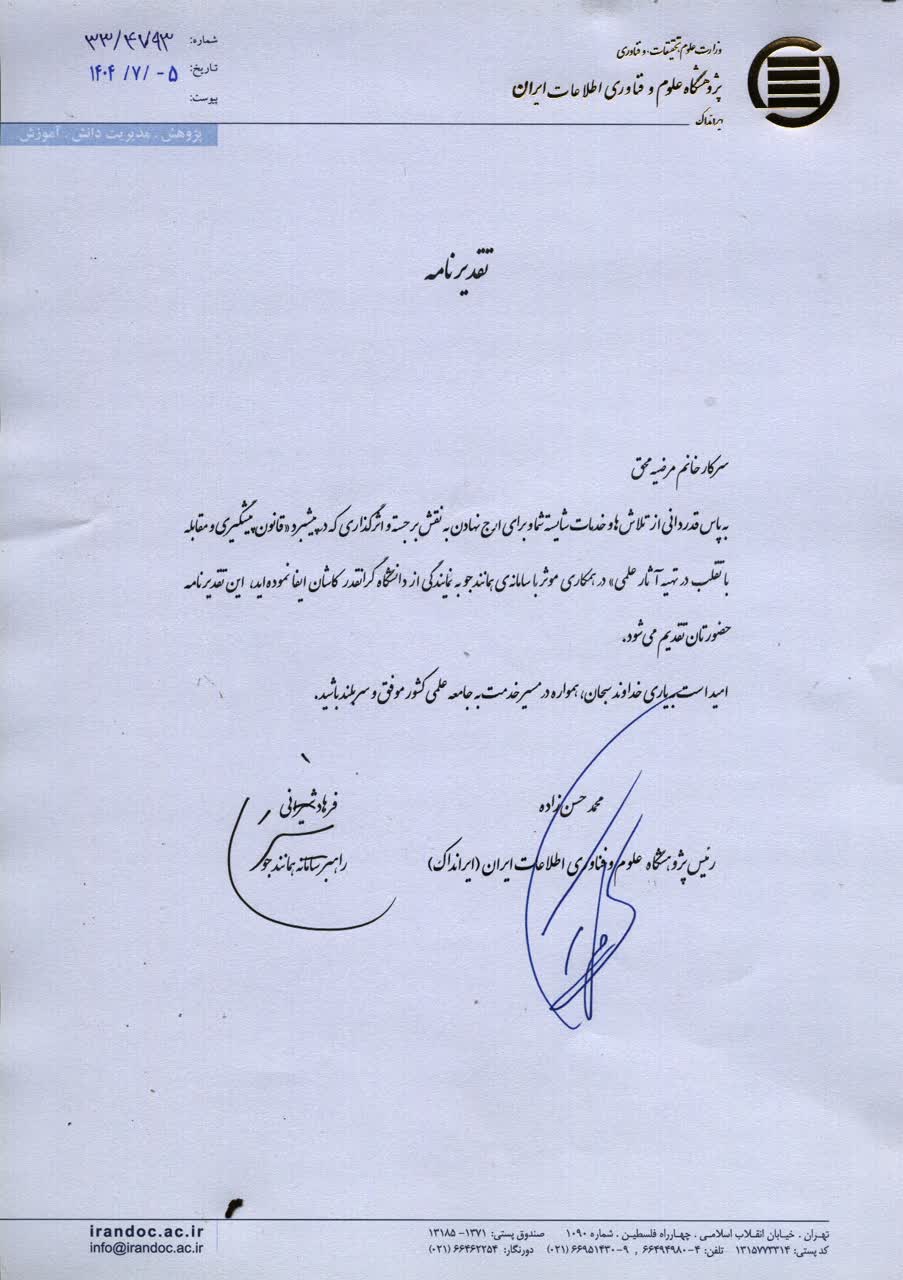 وزارت علوم، تحقیقات، و فناوری
پژوهشگاه علوم و فناوری اطلاعات ایران
ایرانداک
شماره: ۳۳/۴۷۹۳
تاریخ: ۱۴۰۴ /۷/ -۵
پیوست:
پژوهش . مدیریت دانش . آموزش
تقدیرنامه
سرکار خانم مرضیه محق
به پاس قدردانی از تلاش‌ها و خدمات شایسته شما و برای ارج نهادن به نقش برجسته و اثرگذاری که در پیشبرد «قانون پیشگیری و مقابله
با تقلب در تهیه آثار علمی» در همکاری موثر با سامانه‌ی همانندجو به نمایندگی از دانشگاه گرانقدر کاشان ایفا نموده‌اید، این تقدیرنامه
حضورتان تقدیم می‌شود.
امید است به یاری خداوند سبحان، همواره در مسیر خدمت به جامعه علمی کشور موفق و سربلند باشید.
محمد حسن‌زاده
رئیس پژوهشگاه علوم و فناوری اطلاعات ایران (ایرانداک)
فرهاد شیرانی
راهبر سامانه همانندجو
تهران . خیابان انقلاب اسلامی . چهارراه فلسطین . شماره ۱۰۹۰ صندوق پستی: ۱۳۷۱- ۱۳۱۸۵
کد پستی: ۱۳۱۵۷۷۳۳۱۴ تلفن: ۴-۶۶۴۹۴۹۸۰ , ۹-۶۶۹۵۱۴۳۰ (۰۲۱) دورنگار: ۶۶۴۶۲۲۵۴ (۰۲۱)
irandoc.ac.ir
info@irandoc.ac.ir